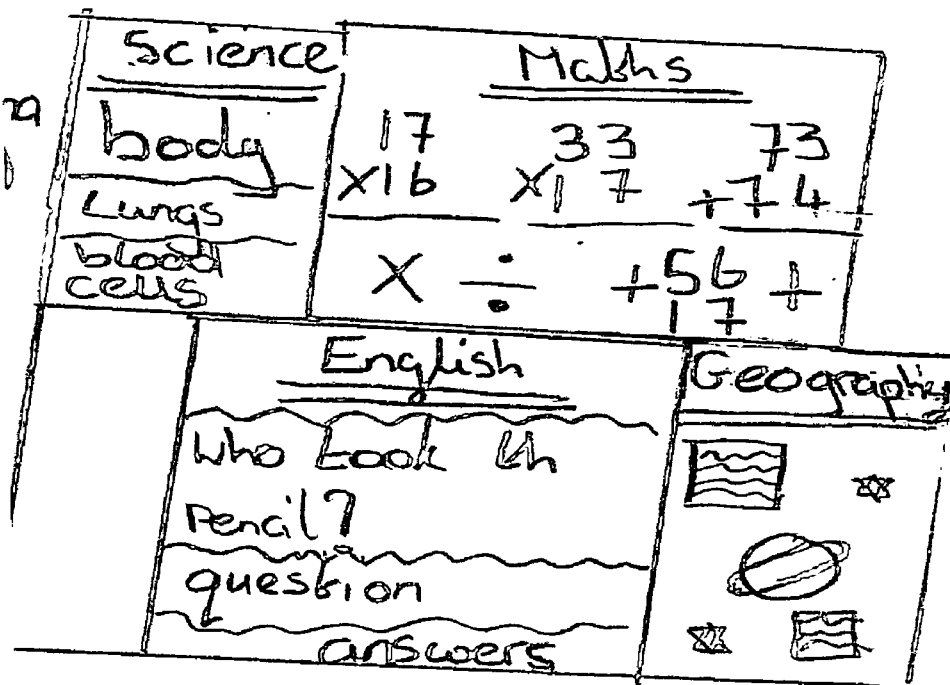 Science
body
Lungs
blood
cells
Maths
17 33 73
×16 ×17 +74
× ÷ +56 +
17
English
Who took th
Pencil?
question
answers
Geography